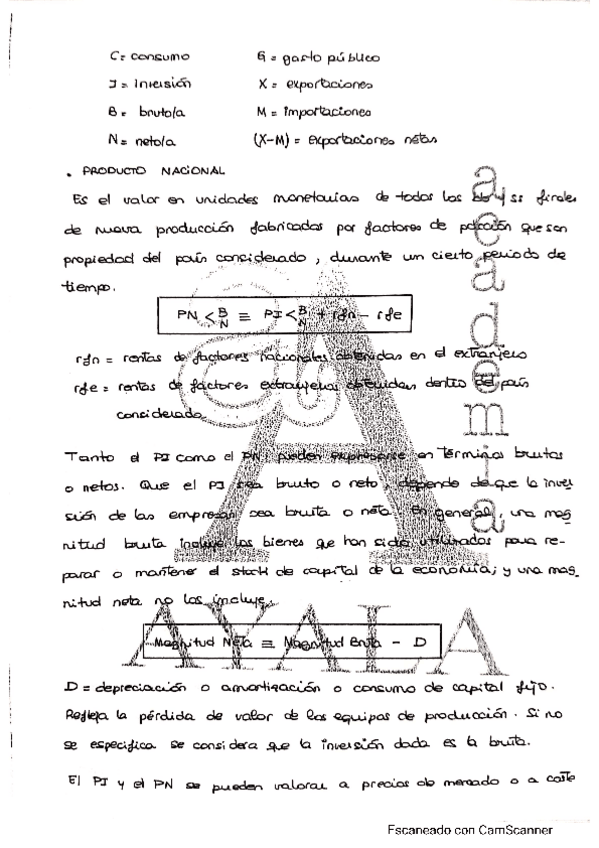 C = consumo G = gasto público
I = inversión X = exportaciones
B = bruto/a M = importaciones
N = neto/a (X-M) = exportaciones netas
• PRODUCTO NACIONAL
Es el valor en unidades monetarias de todos los bs y ss finales
de nueva producción fabricados por factores de pdcción que son
propiedad del país considerado, durante un cierto periodo de
tiempo.
PN < B/N ≡ PI < B/N + rfn - rfe
rfn = rentas de factores nacionales obtenidas en el extranjero
rfe = rentas de factores extranjeros obtenidas dentro del país
considerado.
Tanto el PI como el PN pueden expresarse en términos brutos
o netos. Que el PI sea bruto o neto, depende de que la inver
sión de las empresas sea bruta o neta. En general, una mag
nitud bruta incluye los bienes que han sido utilizados para re-
parar o mantener el stock de capital de la economía; y una mag_
nitud neta no los incluye.
Magnitud Neta ≡ Magnitud Bruta - D
D = depreciación o amortización o consumo de capital fijo.
Refleja la pérdida de valor de los equipos de producción. Si no
se especifica se considera que la inversión dada es la bruta.
El PI y el PN se pueden valorar a precios de mercado o a coste
academia
AYALA
Escaneado con CamScanner